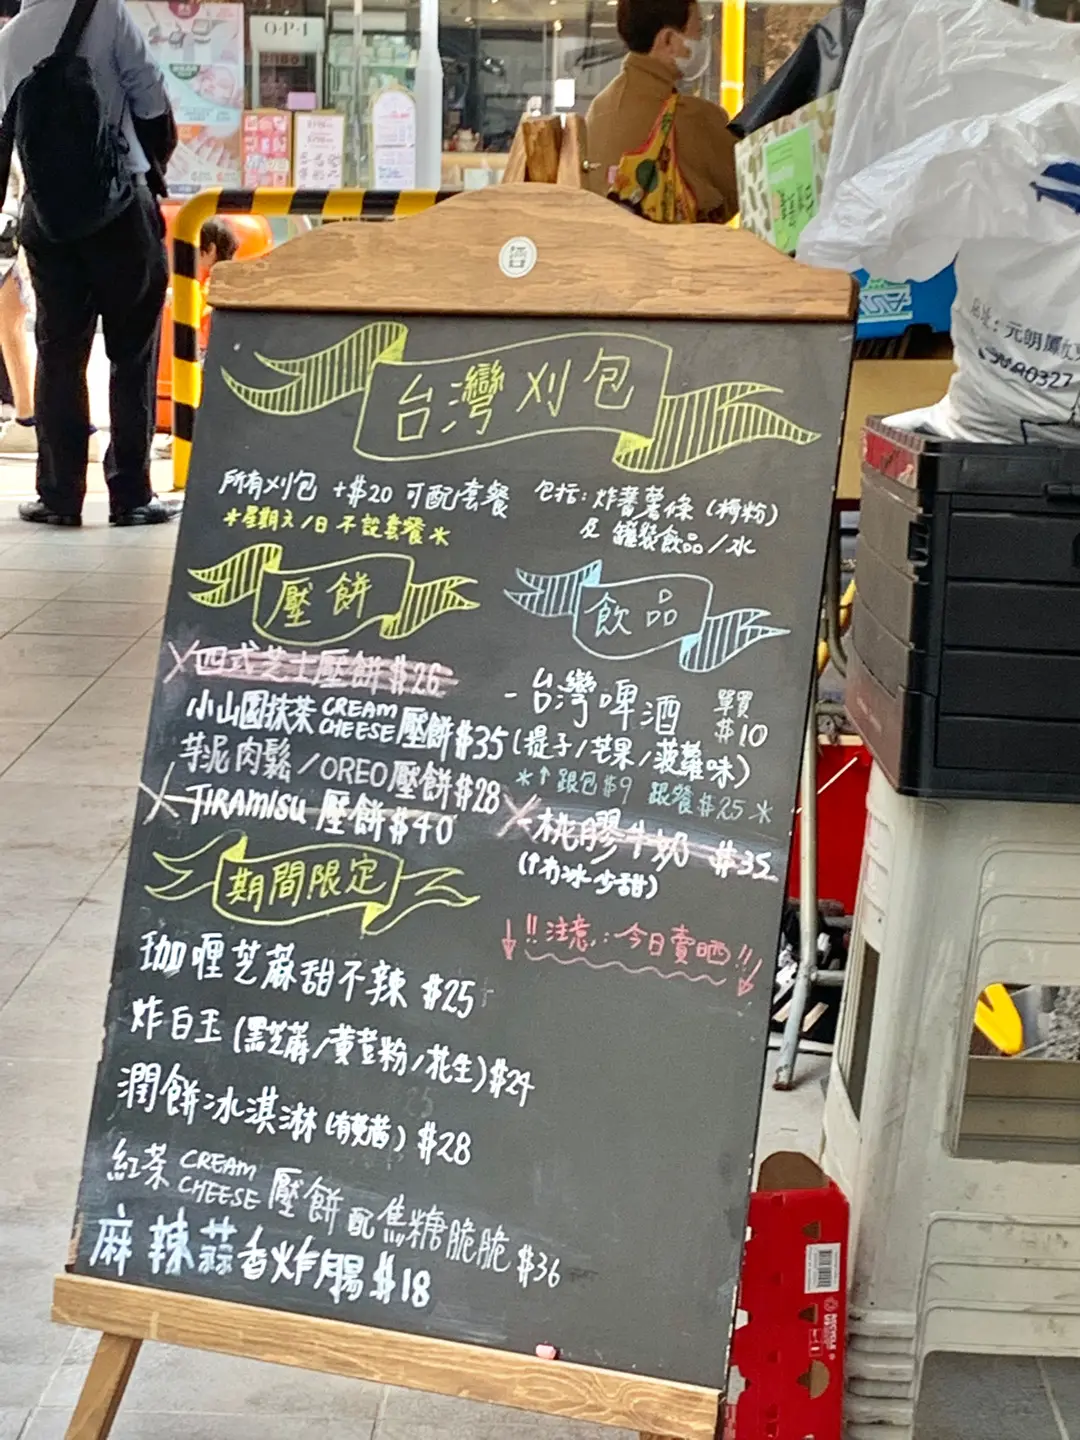 O·P·I
台灣刈包
所有刈包 +$20 可配套餐
*星期六/日 不設套餐*
包括: 炸蕃薯條 (梅粉)
及 罐裝飲品/水
壓餅
X 四式芝士壓餅 $26
小山園抹茶 CREAM CHEESE 壓餅 $35
芋泥肉鬆/OREO壓餅 $28
X TIRAMISU 壓餅 $40
飲品
- 台灣啤酒 單買 $10
(提子/芒果/菠蘿味)
*↑跟包$9 跟餐$25*
X - 桃膠牛奶 $35
(↑冇冰少甜)
↓!!注意:今日賣晒!!↓
期間限定
珈喱芝蔴甜不辣 $25
炸白玉 (黑芝蔴/黃荳粉/花生) $24
潤餅冰淇淋 (有芫茜) $28
紅茶 CREAM CHEESE 壓餅 配焦糖脆脆 $36
麻辣蒜香炸腸 $18
元朗鳳